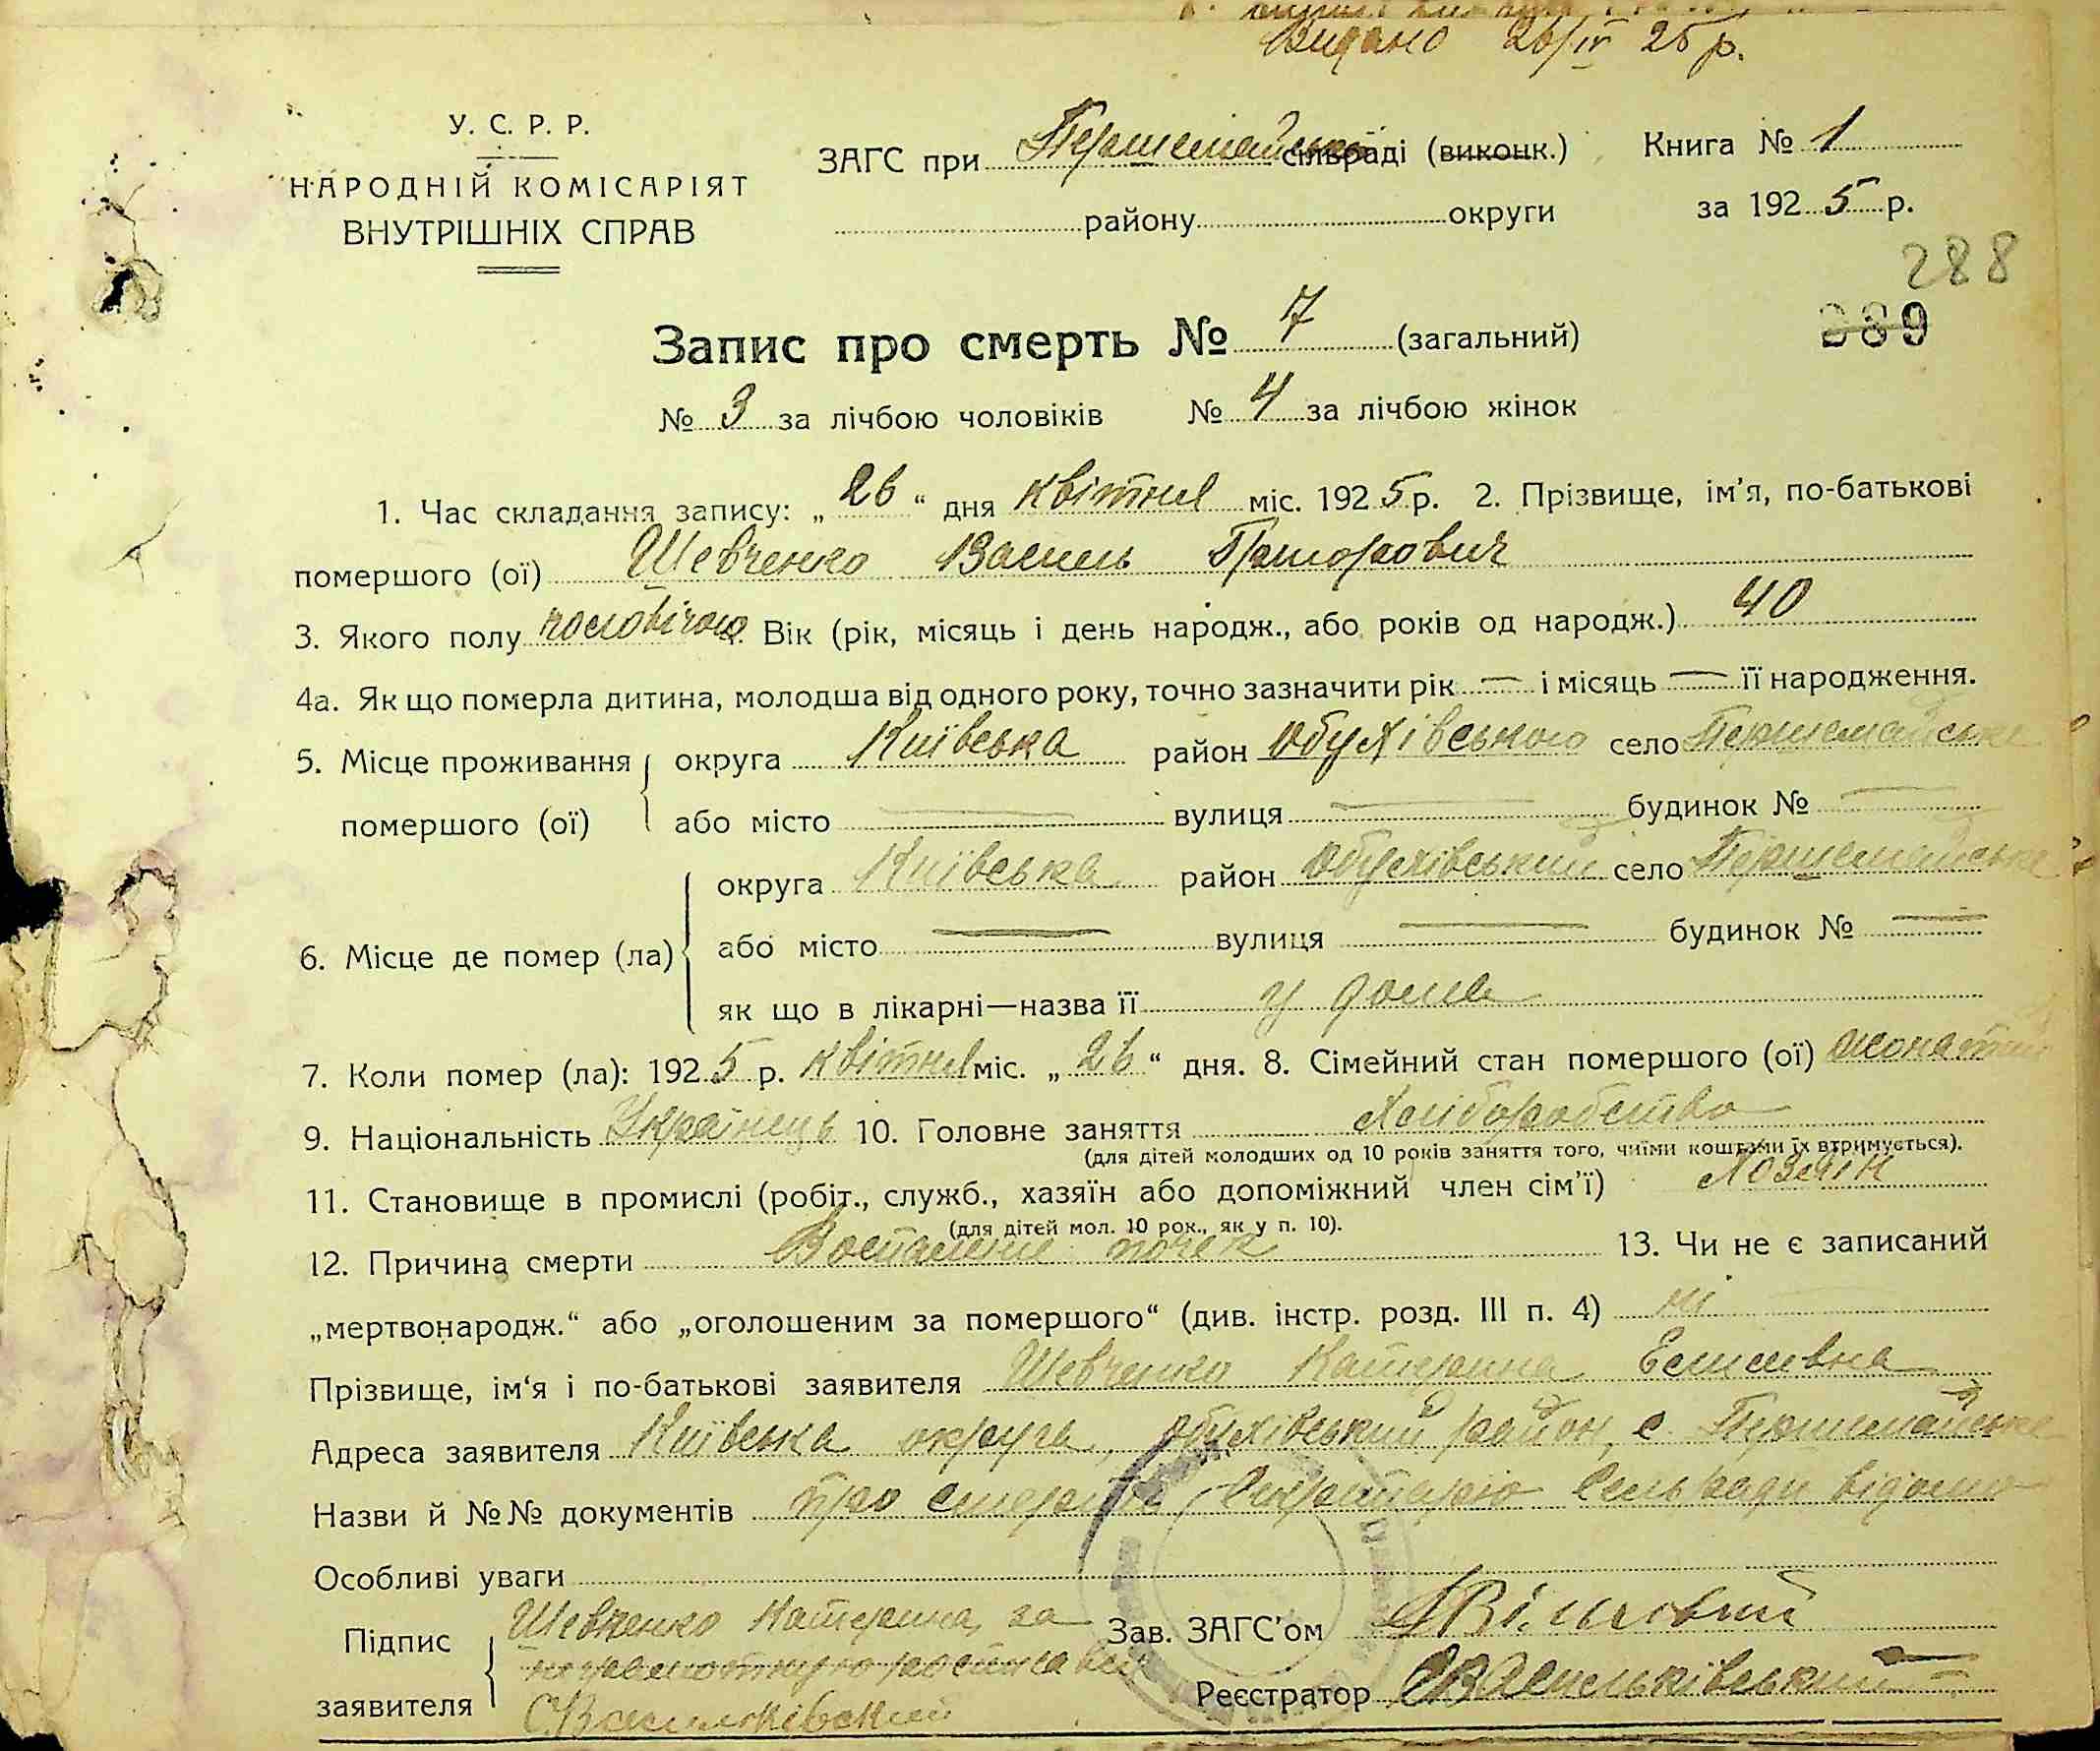 Видано 26/IV 25 р.
У. С. Р. Р.
НАРОДНІЙ КОМІСАРІЯТ
ВНУТРІШНІХ СПРАВ
ЗАГС при Першемайські сільраді (виконк.)
району округи
Книга № 1
за 1925 р.
288
289
Запис про смерть № 7 (загальний)
№ 3 за лічбою чоловіків № 4 за лічбою жінок
1. Час складання запису: „ 26 “ дня квітня міс. 1925 р. 2. Прізвище, ім'я, по-батькові
помершого (ої) Шевченко Василь Григорович
3. Якого полу чоловічого Вік (рік, місяць і день народж., або років од народж.) 40
4а. Як що померла дитина, молодша від одного року, точно зазначити рік — і місяць — її народження.
5. Місце проживання округа Київська район Обухівського село Першемайське
помершого (ої) або місто — вулиця — будинок № —
округа Київська район Обухівський село Першемайське
6. Місце де помер (ла) або місто — вулиця — будинок № —
як що в лікарні—назва її у дома
7. Коли помер (ла): 1925 р. квітня міс. „ 26 “ дня. 8. Сімейний стан помершого (ої) жонатий
9. Національність Українець 10. Головне заняття Хліборобство
(для дітей молодших од 10 років заняття того, чиїми коштами їх втримується).
11. Становище в промислі (робіт., служб., хазяїн або допоміжний член сім'ї) Хозяїн
(для дітей мол. 10 рок., як у п. 10).
12. Причина смерти Воспаление почек 13. Чи не є записаний
„мертвонародж.“ або „оголошеним за помершого“ (див. інстр. розд. III п. 4) ні
Прізвище, ім‘я і по-батькові заявителя Шевченко Катерина
Адреса заявителя Київська округа, Обухівський район, с. Першемайське
Назви й №№ документів про смерть Секретарю Сельради відомо
Особливі уваги
Підпис Шевченко Катерина, за
неграмотную росписався
заявителя СВасильківский
Зав. ЗАГС'ом
Реєстратор СВасильківський